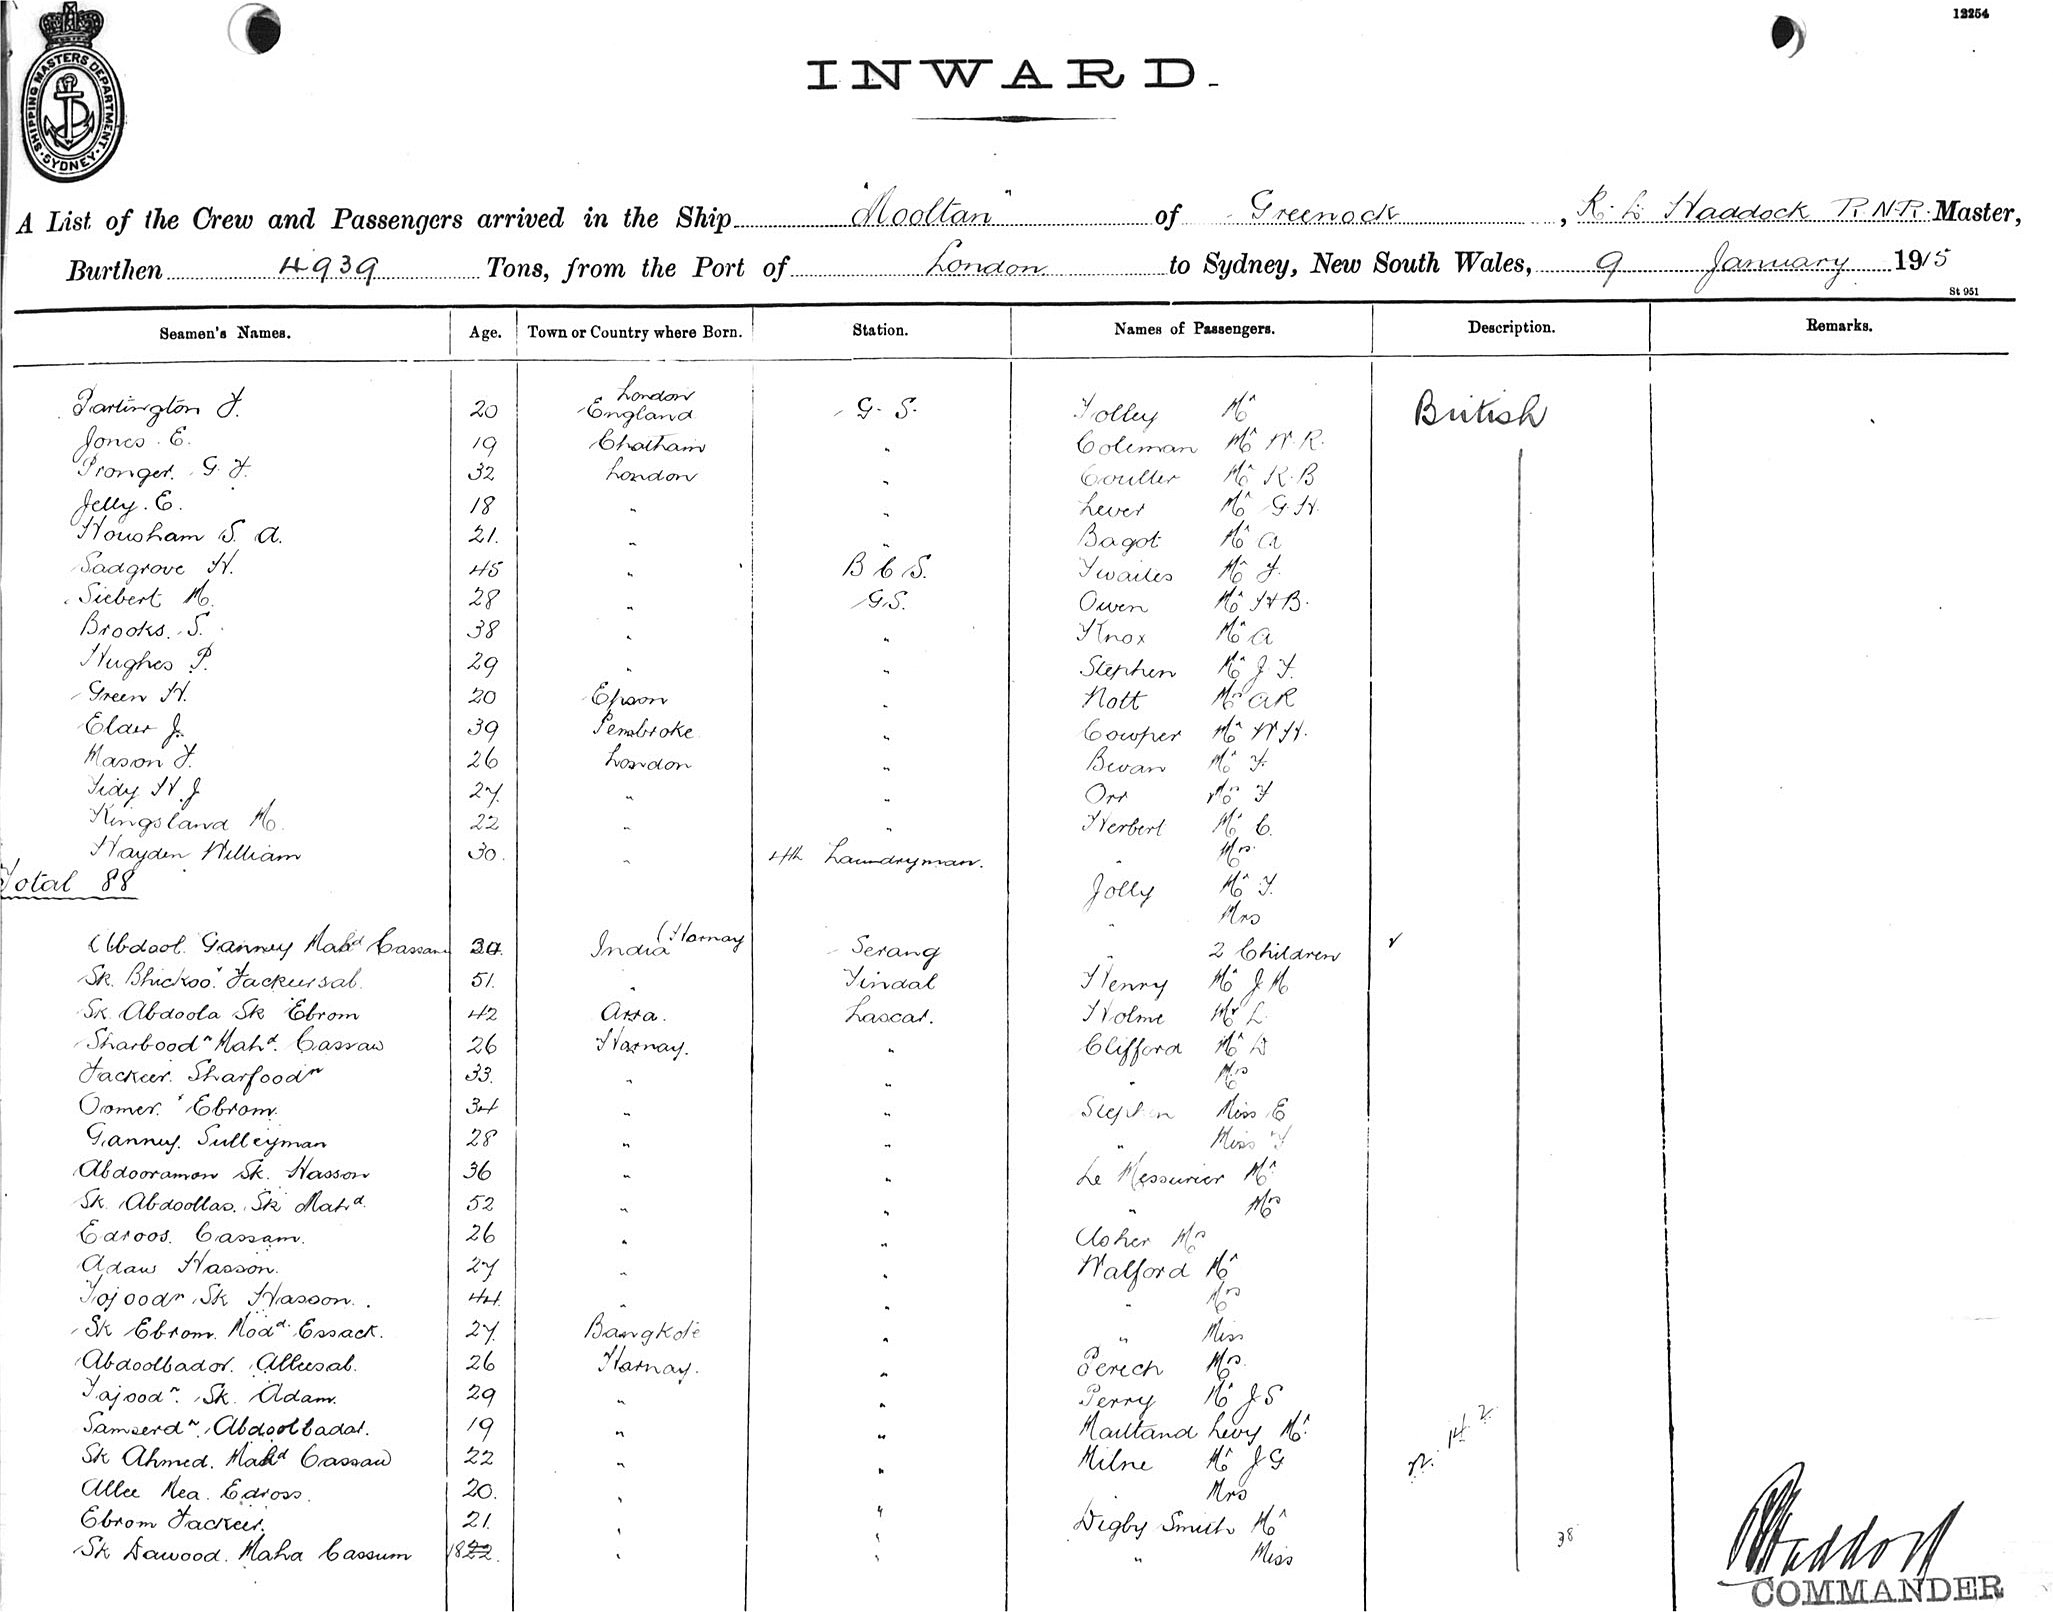 12254
SHIPPING MASTERS DEPARTMENT · SYDNEY ·
INWARD.
A List of the Crew and Passengers arrived in the Ship "Mooltan" of Greenock, R. L. Haddock R.N.R. Master,
Burthen 4939 Tons, from the Port of London to Sydney, New South Wales, 9 January 1915
St 951
Seamen's Names. Age. Town or Country where Born. Station. Names of Passengers. Description. Remarks.
Partington F. 20 London England G. S. Tolley Mr British
Jones. E. 19 Chatham " Coleman Mr W. R.
Pronger. G. F. 32 London " Coulter Mr R. B
Jelly. E. 18 " " Lever Mr G H.
Housham S. A. 21. " " Bagot Mr A
Sadgrove H. 45 " B C S. Twaites Mr F.
Siebert M. 28 " G.S. Owen Mr H B.
Brooks. S. 38 " " Knox Mr A
Hughes P. 29 " " Stephen Mr J. F.
Green H. 20 Epsom " Nott Mrs A R
Elder J. 39 Pembroke " Cowper Mr W H.
Mason F. 26 London " Bevan Mr F.
Tidy H. J 27. " " Orr Mrs F
Kingsland M. 22 " " Herbert Mr C.
Hayden William 30. " 4th Laundryman. " Mrs
Total 88 Jolly Mr F.
" Mrs
Abdool Ganney Mahd Cassam India (Harnay Serang " 2 Children
Sk. Bhickoo. Fackeersab. 51. " Tindal Henry Mr J. M
Sk. Abdoola Sk Ebrom 42 Lascar. Holme L.
Sharbood n Mahd. Cassaw 26 Harnay. " Clifford Mr D
Fackeer. Sharfood n 33. " " " Mrs
Oomer. Ebrom. 34 " " Stephen Miss E
Ganney. Sulleyman 28 " " " Miss F
Abdooramon Sk. Hasson 36 " " Le Messurier Mr
Sk. Abdoollas. Sk Mahd. 52 " " " Mrs
Edroos. Cassam. 26 " " Asher Mrs
Adaw Hasson. 27 " " Walford Mr
Tojood n Sk Hasson. 44 " " " Mrs
Sk Ebrom. Mod d. Essack. 27. " " Miss
Abdoolbador. Alleesab. 26 Harnay. " Mrs.
Tajood n. Sk. Adam. 29 " " Perry Mr J S
Samserd n. Abdoolbadar. 19 " " Maitland Levy Mr.
Sk Ahmed. Mahd Cassaw 22 " " Milne Mr J G
Allee Mea. Edross. 20. " " " Mrs
Ebrom Fackeer. 21. " " Digby Smith Mr
Sk Dawood. Maha Cassum 18 22. " " " Miss
38
Haddock
COMMANDER